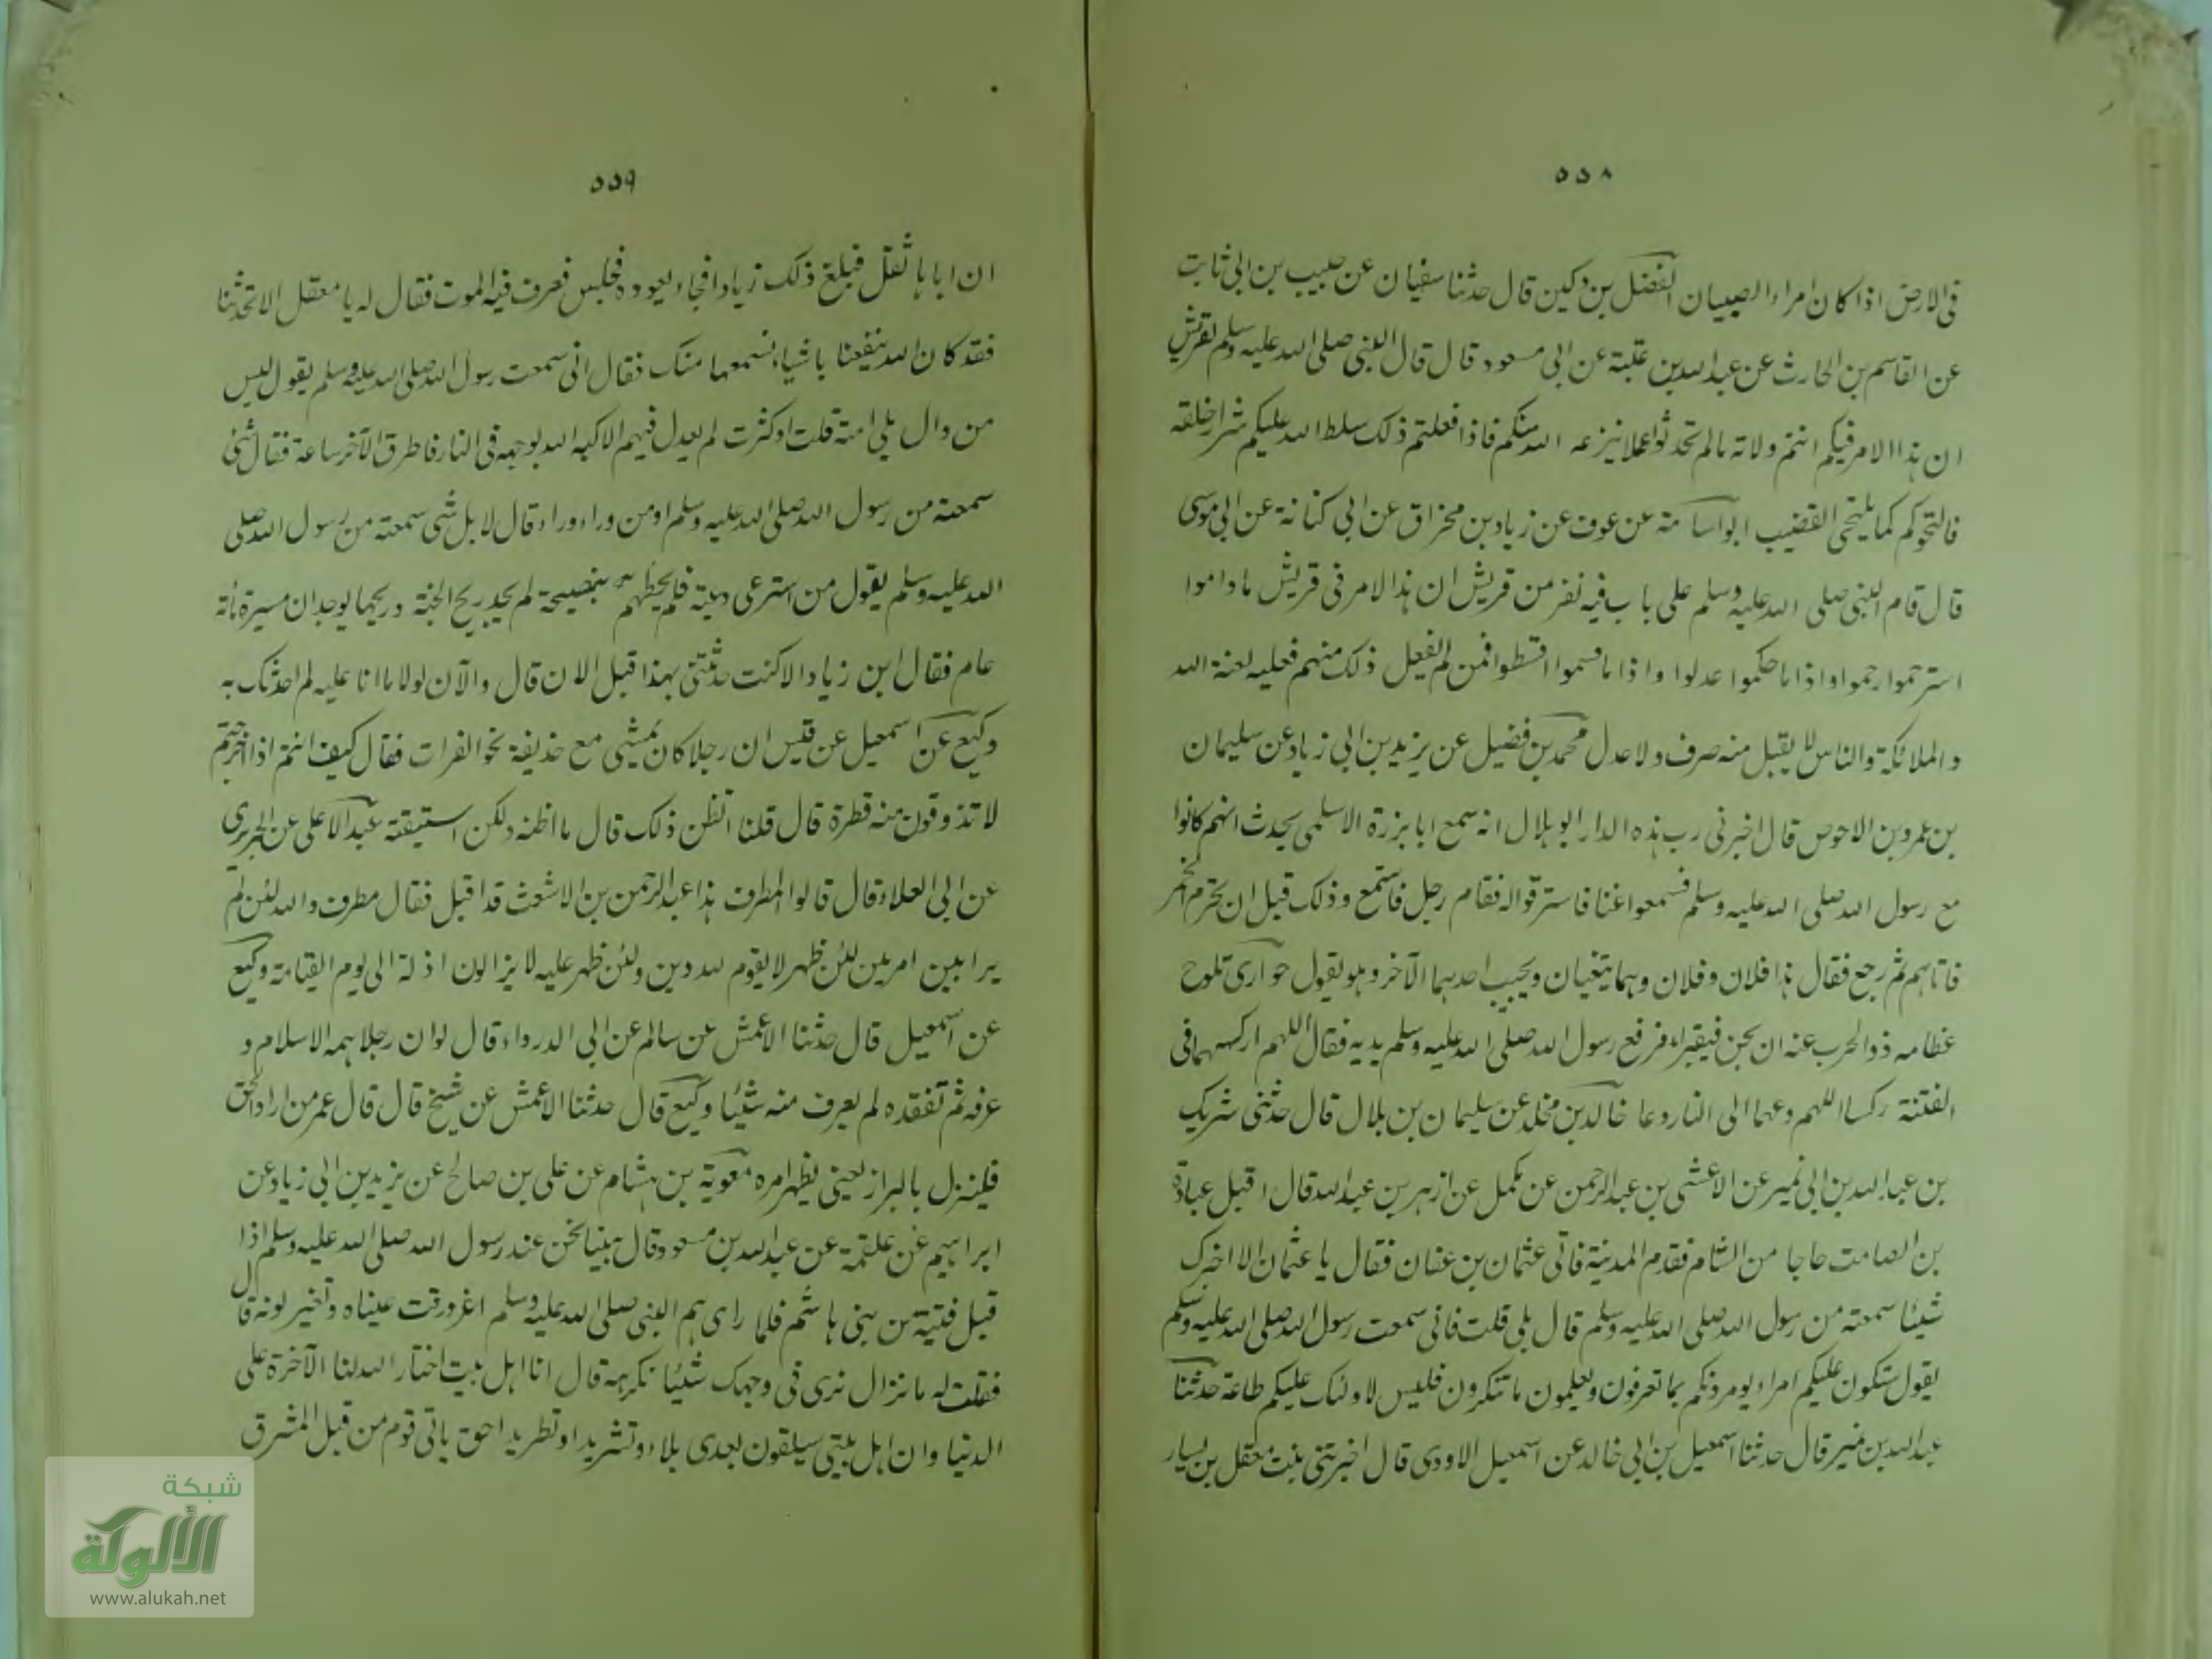 ٥٥٨
فى الارض اذا كان امراء الصبيان الفضل بن دكين قال حدثنا سفيان عن حبيب بن ابى ثابت
عن القاسم بن الحارث عن عبد الله بن عتبة عن ابى مسعود قال قال النبى صلى الله عليه وسلم لقريش
ان هذا الامر فيكم انتم ولاته ما لم تحدثوا عملا ينزعه الله منكم فاذا فعلتم ذلك سلط الله عليكم شرار خلقه
فالتحوكم كما يلتحى القضيب ابو اسامة عن عوف عن زياد بن مخراق عن ابى كنانة عن ابى موسى
قال قام النبى صلى الله عليه وسلم على باب فيه نفر من قريش ان هذا الامر فى قريش ما داموا
استرحموا رحموا واذا ما حكموا عدلوا واذا ما قسموا اقسطوا فمن لم يفعل ذلك منهم فعليه لعنة الله
والملائكة والناس لا يقبل منه صرف ولا عدل محمد بن فضيل عن يزيد بن ابى زياد عن سليمان
بن عمرو بن الاحوص قال اخبرنى رب هذه الدار ابو هلال انه سمع ابا برزة الاسلمى يحدث انهم كانوا
مع رسول الله صلى الله عليه وسلم فسمعوا غنا فاستشرفوا له فقام رجل فاستمع وذلك قبل ان تحرم الخمر
فاتاهم ثم رجع فقال هذا فلان وفلان وهما يتغنيان ويجيب احدهما الآخر وهو يقول حوارى تلوح
عظامه ذوا الحرب عنه ان يجن فيقبرا فرفع رسول الله صلى الله عليه وسلم يديه فقال اللهم اركسهما فى
الفتنة ركسا اللهم دعهما الى النار دعا خالد بن مخلد عن سليمان بن بلال قال حدثنى شريك
بن عبد الله بن ابى نمير عن الاعشى بن عبد الرحمن عن مكمل عن ازهر بن عبد الله قال اقبل عبادة
بن الصامت حاجا من الشام فقدم المدينة فاتى عثمان بن عفان فقال يا عثمان الا اخبرك
شيئا سمعته من رسول الله صلى الله عليه وسلم قال بلى قلت فانى سمعت رسول الله صلى الله عليه وسلم
يقول ستكون عليكم امراء يومرونكم بما تعرفون ويعلمون ما تنكرون فليس لاولئك عليكم طاعة حدثنا
عبد الله بن نمير قال حدثنا اسمعيل بن ابى خالد عن اسمعيل الاودى قال اخبرتنى بنت معقل بن يسار
٥٥٩
ان اباها ثقل فبلغ ذلك زيادا فجاء يعوده فجلس فعرف فيه الموت فقال له يا معقل الا تحدثنا
فقد كان الله ينفعنا باشياء نسمعها منك فقال انى سمعت رسول الله صلى الله عليه وسلم يقول ليس
من وال يلى امة قلت او كثرت لم يعدل فيهم الا كبه الله بوجهه فى النار فاطرق الآخر ساعة فقال شئ
سمعته من رسول الله صلى الله عليه وسلم او من وراء وراء قال لا بل شى سمعته من رسول الله صلى
الله عليه وسلم يقول من استرعى رعية فلم يحطهم بنصيحة لم يجد ريح الجنة وريحها يوجد ان مسيرة مأته
عام فقال ابن زياد الا كنت حدثتنى بهذا قبل الان قال والآن لولا ما انا عليه لم احدثك به
وكيع عن اسمعيل عن قيس ان رجلا كان يمشى مع حذيفة نحو الفرات فقال كيف انتم اذا خرجتم
لا تذوقون منه قطرة قال قلنا اتظن ذلك قال ما اظنه ولكن استيقنه عبد الاعلى عن الجريرى
عن ابى العلاء قال قالوا لمطرف هذا عبد الرحمن بن الاشعث قد اقبل فقال مطرف والله لئن لم
يرا بين امرين لئن ظهر لا يقوم لله دين ولئن ظهر عليه لا يزالون اذلة الى يوم القيامة وكيع
عن اسمعيل قال حدثنا الاعمش عن سالم عن ابى الدرداء قال لو ان رجلا همه الاسلام و
عرفه ثم تفقده لم يعرف منه شيئا وكيع قال حدثنا الاعمش عن شيخ قال قال عمر من اراد الحق
فلينزل بالبراز يعنى يظهر امره معوية بن هشام عن على بن صالح عن يزيد بن ابى زياد عن
ابراهيم عن علقمة عن عبد الله بن مسعود قال بينما نحن عند رسول الله صلى الله عليه وسلم اذا
قبل فتية من بنى هاشم فلما راى هم النبى صلى الله عليه وسلم اغرورقت عيناه وتغير لونه قال
فقلت له ما نزال نرى فى وجهك شيئا نكرهه قال انا اهل بيت اختار الله لنا الآخرة على
الدنيا وان اهل بيتى سيلقون بعدى بلاء وتشريدا وتطريدا حق ياتى قوم من قبل المشرق
شبكة
الألوكة
www.alukah.net